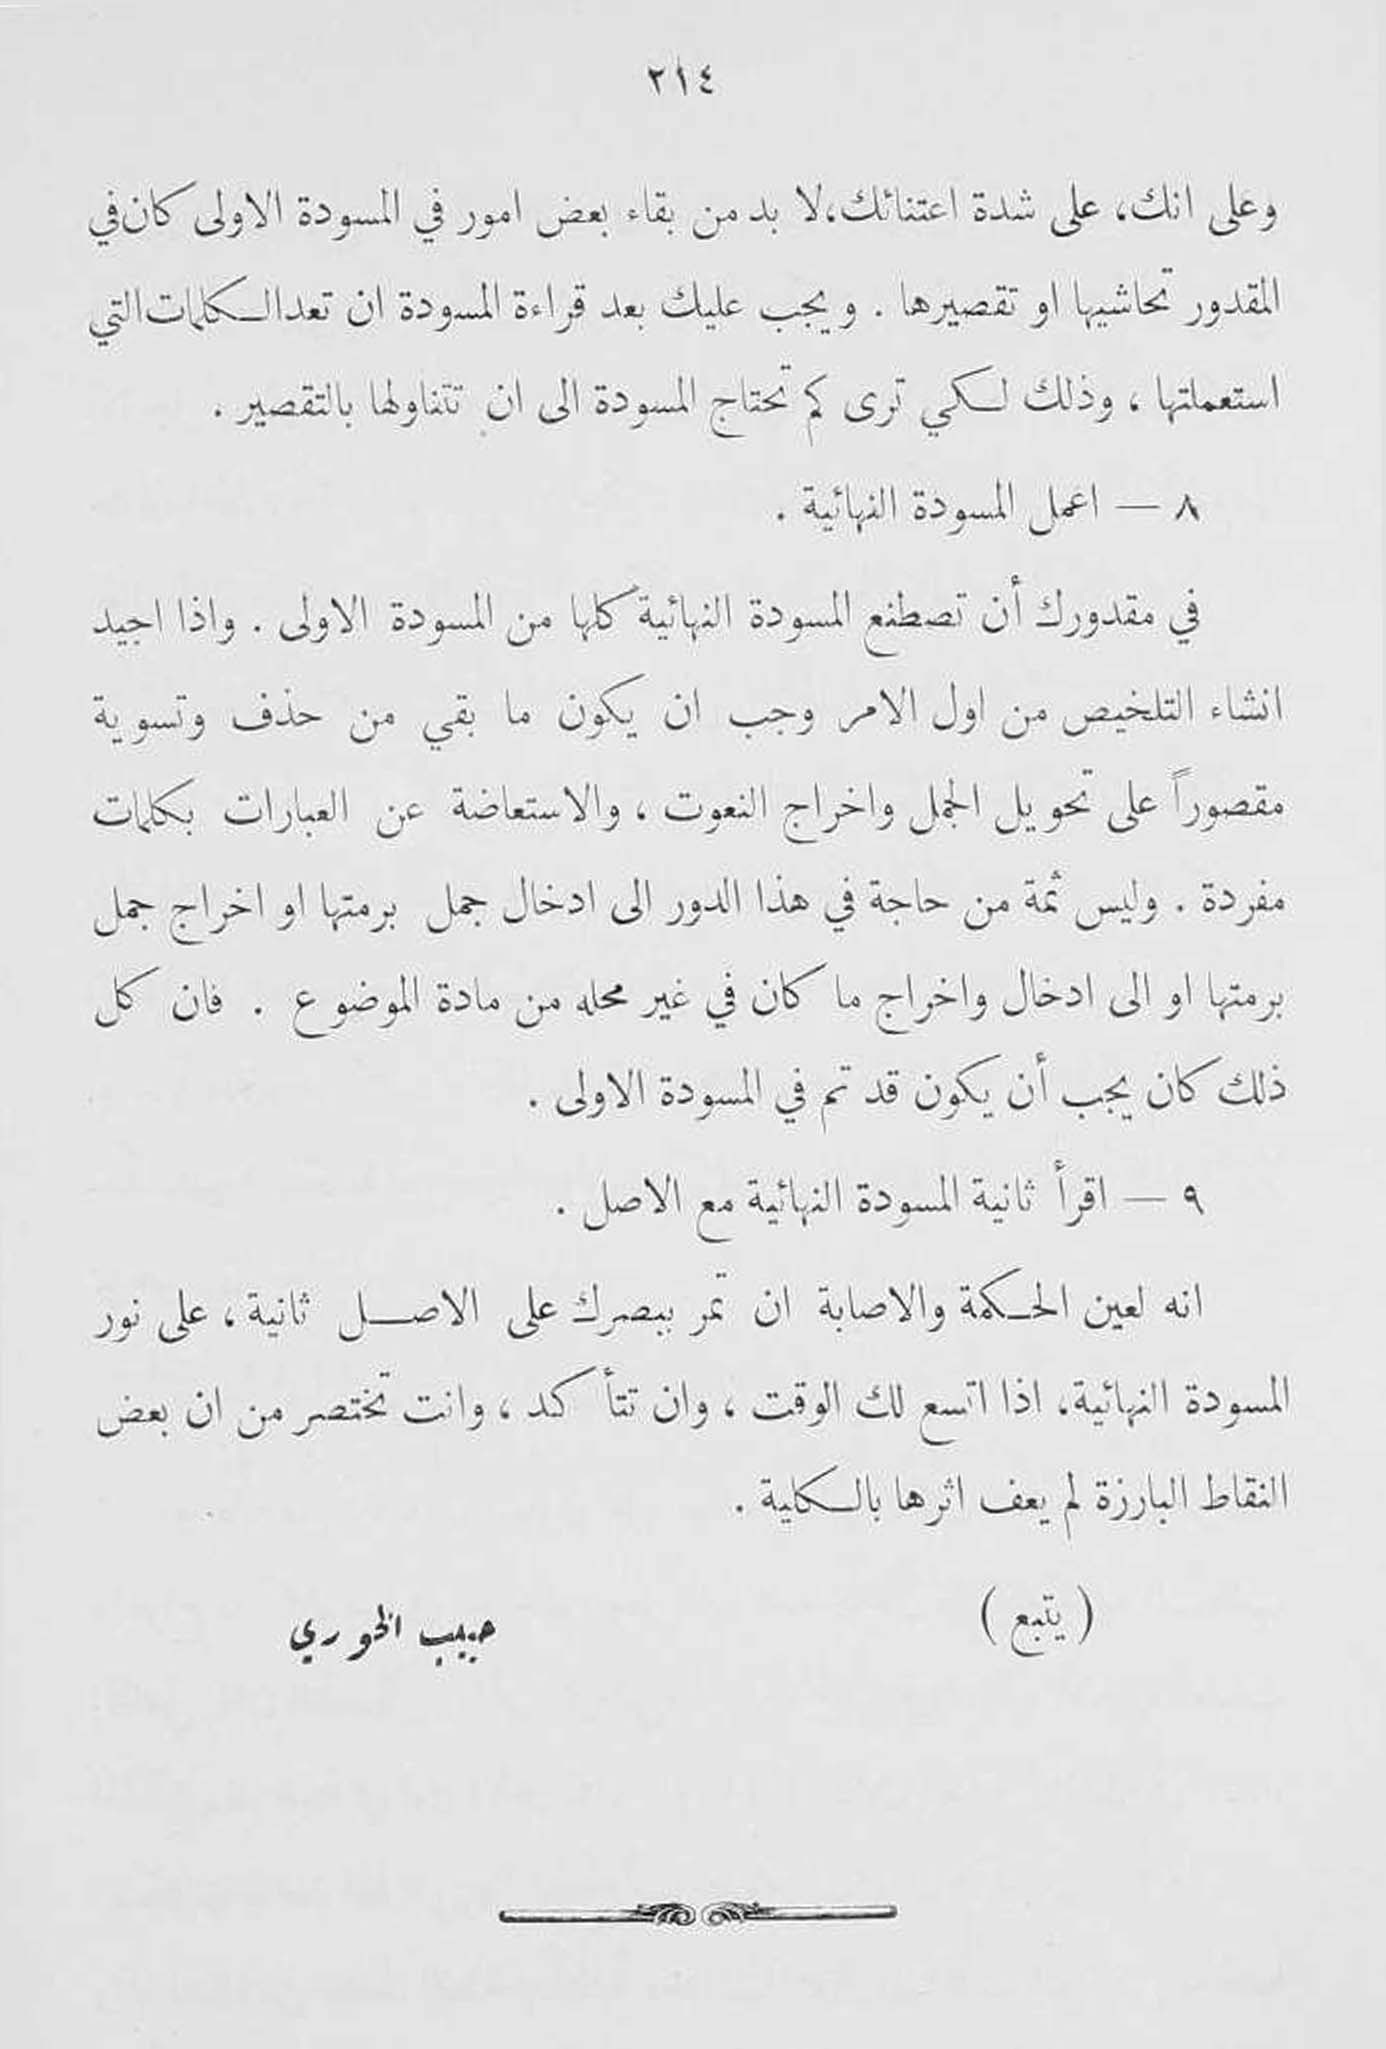 ٢١٤
وعلى انك، على شدة اعتنائك، لا بد من بقاء بعض امور في المسودة الاولى كان في
المقدور تحاشيها او تقصيرها . ويجب عليك بعد قراءة المسودة ان تعد الكلمات التي
استعملتها ، وذلك لكي ترى كم تحتاج المسودة الى ان تتناولها بالتقصير .
٨ — اعمل المسودة النهائية .
في مقدورك أن تصطنع المسودة النهائية كلها من المسودة الاولى . واذا اجيد
انشاء التلخيص من اول الامر وجب ان يكون ما بقي من حذف وتسوية
مقصوراً على تحويل الجمل واخراج النعوت ، والاستعاضة عن العبارات بكلمات
مفردة . وليس ثمة من حاجة في هذا الدور الى ادخال جمل برمتها او اخراج جمل
برمتها او الى ادخال واخراج ما كان في غير محله من مادة الموضوع . فان كل
ذلك كان يجب أن يكون قد تم في المسودة الاولى .
٩ — اقرأ ثانية المسودة النهائية مع الاصل .
انه لعين الحكمة والاصابة ان تمر ببصرك على الاصل ثانية ، على نور
المسودة النهائية ، اذا اتسع لك الوقت ، وان تتأكد ، وانت تختصر من ان بعض
النقاط البارزة لم يعف اثرها بالكلية .
( يتبع )
حبيب الخوري